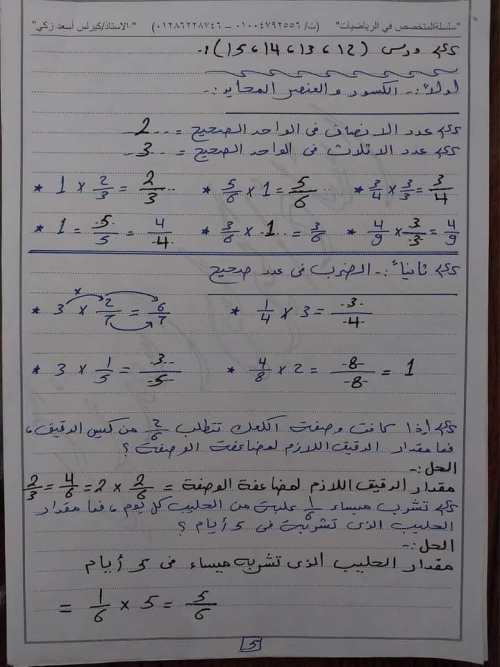 "سلسلة المتخصص في الرياضيات" (ت/ ٠١٠٠٤٧٩٢٥٥٦ – ٠١٢٨٦٢٢٨٧٤٦) "الاستاذ/كيرلس أسعد زكي"
درس (12، 13، 14، 15) :-
أولاً :- الكسور والعنصر المحايد :-
عدد الانصاف فى الواحد الصحيح = 2
عدد الاثلاث فى الواحد الصحيح = 3
* 1 × 2/3 = 2/3 * 5/6 × 1 = 5/6 * 3/4 × 3/3 = 3/4
* 1 = 5/5 = 4/4 * 3/6 × 1 = 3/6 * 4/9 × 3/3 = 4/9
ثانياً :- الضرب فى عدد صحيح
* 3 × 2/7 = 6/7 * 1/4 × 3 = 3/4
* 3 × 1/5 = 3/5 * 4/8 × 2 = 8/8 = 1
إذا كانت وصفة الكعك تتطلب 2/6 من كيس الدقيق،
فما مقدار الدقيق اللازم لمضاعفة الوصفة ؟
الحل :-
مقدار الدقيق اللازم لمضاعفة الوصفة = 2/6 × 2 = 4/6 = 2/3
تشرب ميساء 1/6 علبة من الحليب كل يوم، فما مقدار
الحليب الذى تشربه فى 5 أيام ؟
الحل :-
مقدار الحليب الذى تشربه ميساء فى 5 أيام
= 1/6 × 5 = 5/6
5